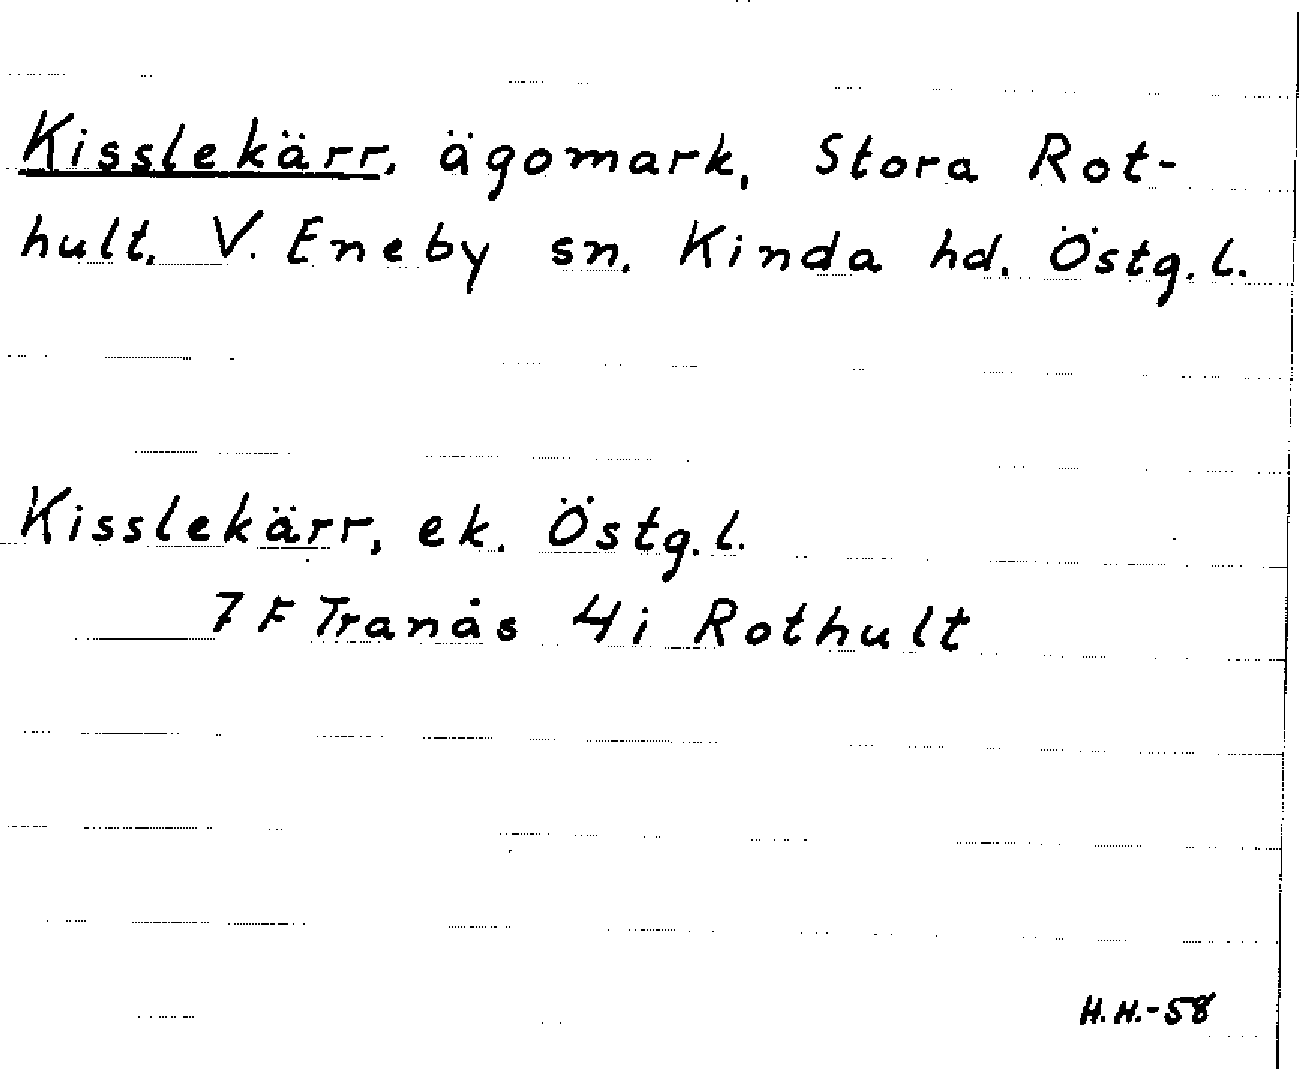 Kisslekärr, ägomark, Stora Rot-
hult. V. Eneby sn. Kinda hd. Östg. l.
Kisslekärr, ek. Östg. l.
7 F Tranås 4 i Rothult
H.H.-58